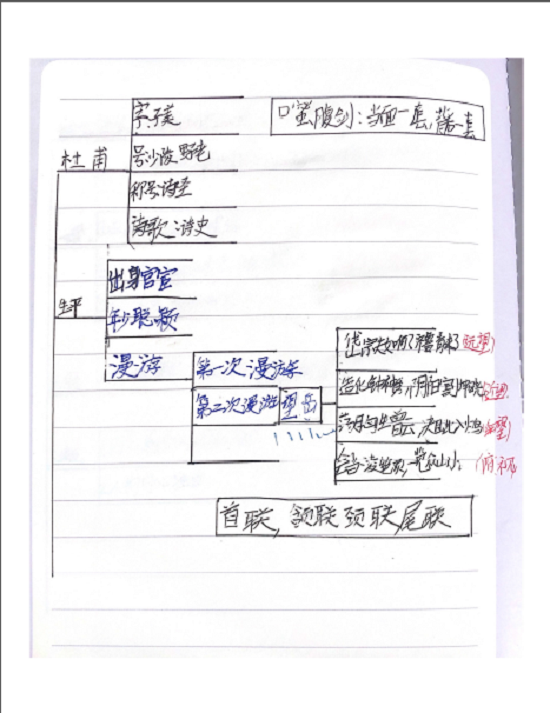 字子美
口蜜腹剑:当面一套,背后一套
杜甫
号少陵野老
称号诗圣
诗歌:诗史
出身官宦
生平
年少聪颖
漫游
第一次漫游
第二次漫游
望岳
岱宗夫如何?齐鲁青未了
远望
造化钟神秀,阴阳割昏晓
近望
荡胸生曾云,决眦入归鸟
会当凌绝顶,一览众山小
首联,颔联颈联,尾联